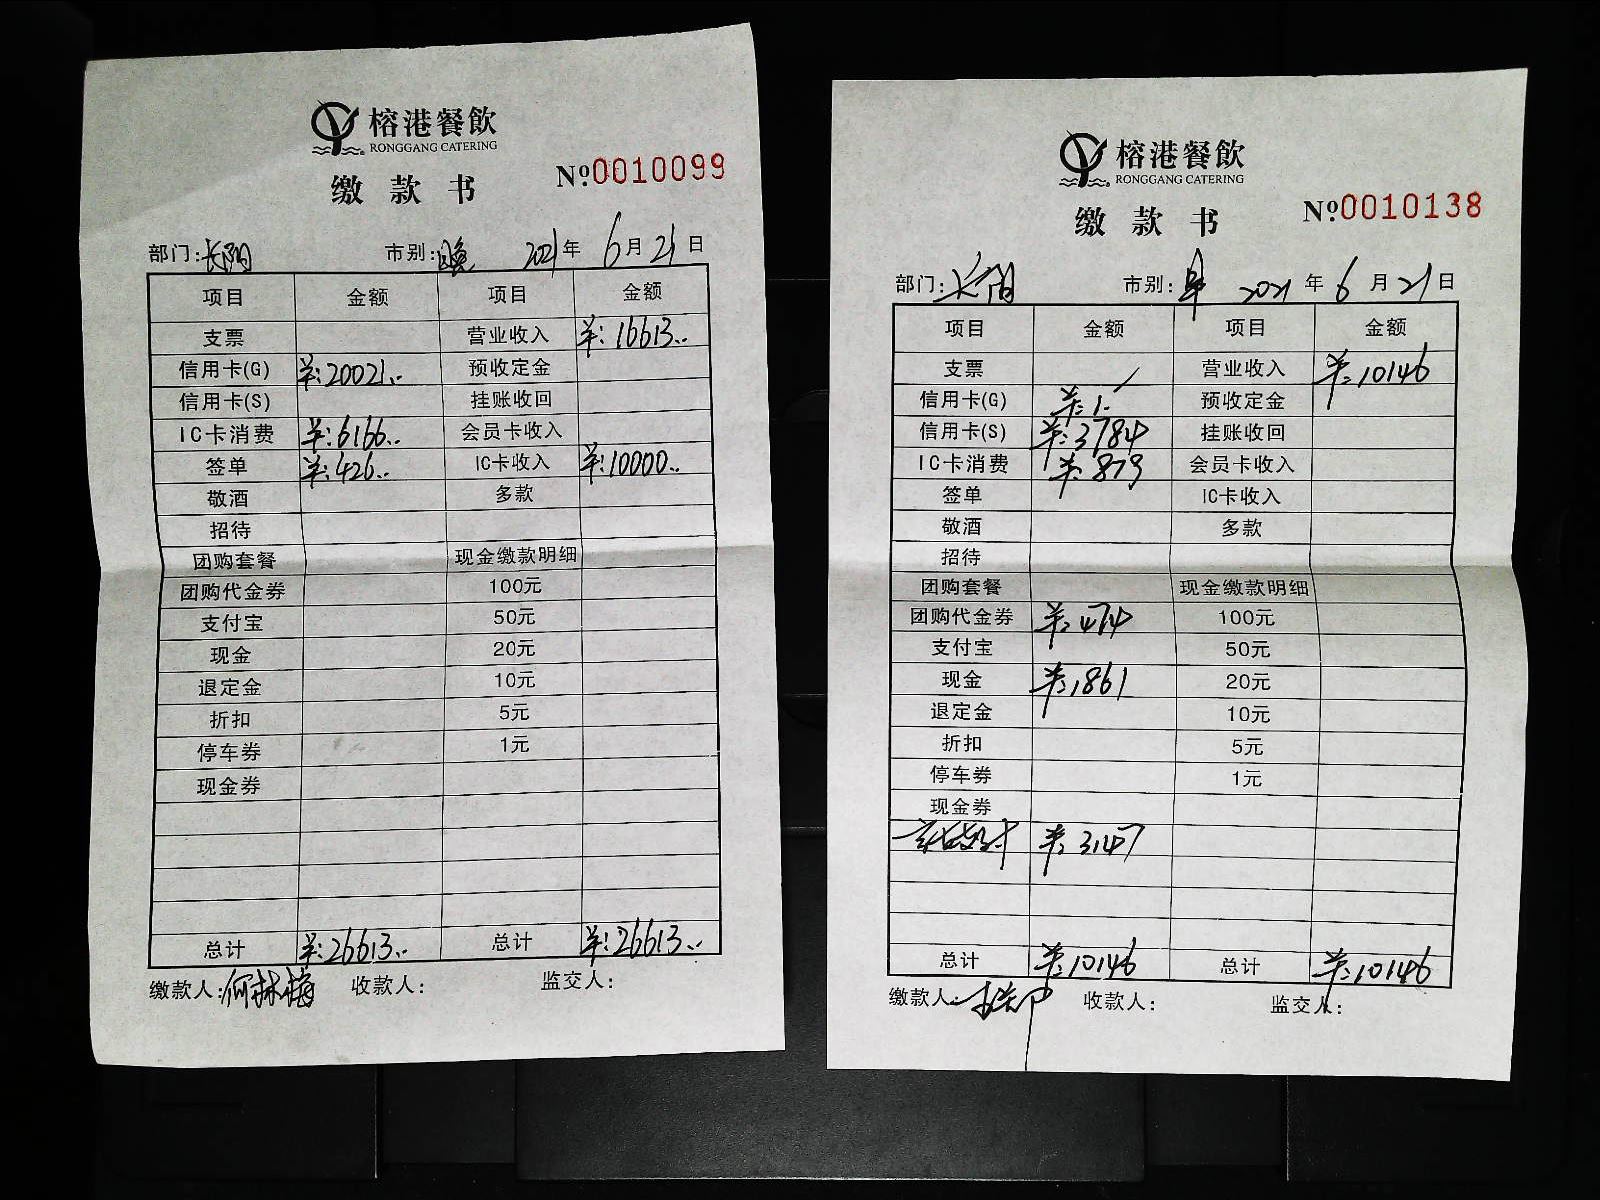 榕港餐飲
RONGGANG CATERING
缴款书
№:0010099
部门:长阳 市别:晚 2021年6月21日
项目 金额 项目 金额
支票 营业收入 ¥:16613..
信用卡(G) ¥:20021.. 预收定金
信用卡(S) 挂账收回
IC卡消费 ¥:6166.. 会员卡收入
签单 ¥:426.. IC卡收入 ¥:10000..
敬酒 多款
招待
团购套餐 现金缴款明细
团购代金券 100元
支付宝 50元
现金 20元
退定金 10元
折扣 5元
停车券 1元
现金券
总计 ¥:26613.. 总计 ¥:26613..
缴款人:何林梅 收款人: 监交人:
榕港餐飲
RONGGANG CATERING
缴款书
№:0010138
部门:长阳 市别: 2021年6月21日
项目 金额 项目 金额
支票 / 营业收入 ¥:10146
信用卡(G) ¥:1. 预收定金
信用卡(S) ¥:3784 挂账收回
IC卡消费 ¥:879 会员卡收入
签单 IC卡收入
敬酒 多款
招待
团购套餐 现金缴款明细
团购代金券 ¥:474 100元
支付宝 50元
现金 ¥:1861 20元
退定金 10元
折扣 5元
停车券 1元
现金券
¥:3147
总计 ¥:10146 总计 ¥:10146
缴款人: 收款人: 监交人: